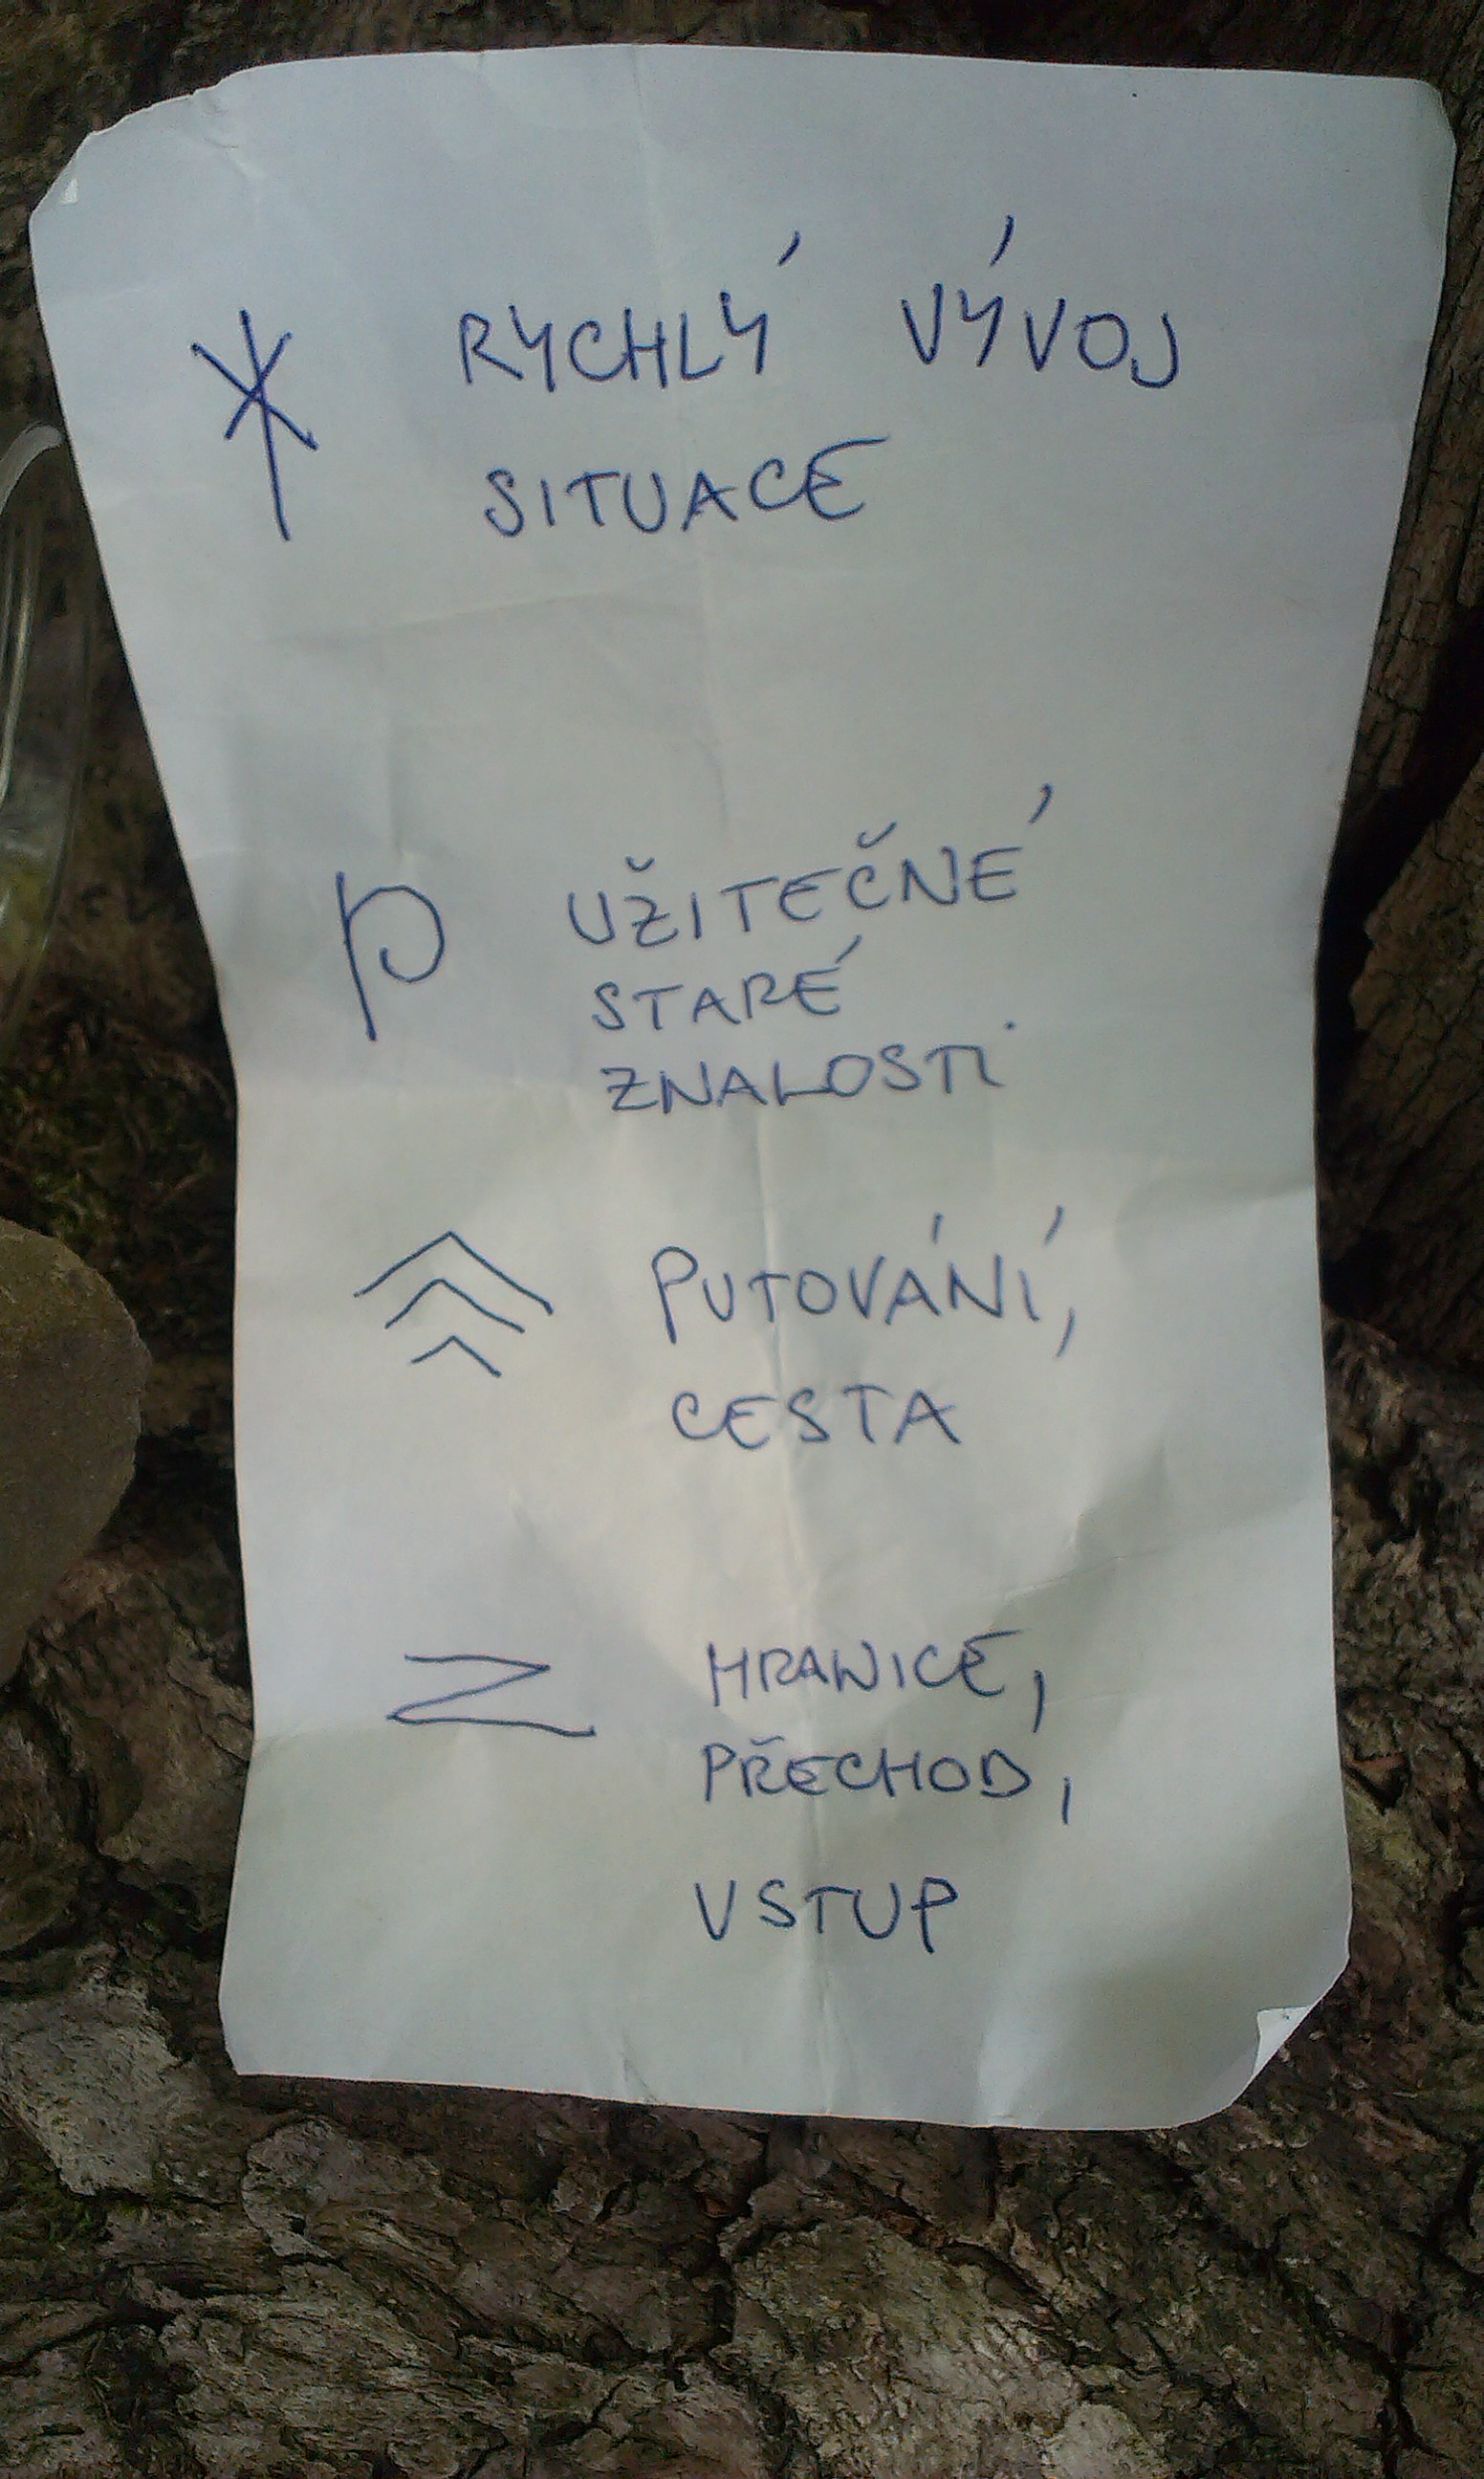 RYCHLÝ VÝVOJ
SITUACE
UŽITEČNÉ
STARÉ
ZNALOSTI
PUTOVÁNÍ,
CESTA
HRANICE,
PŘECHOD,
VSTUP